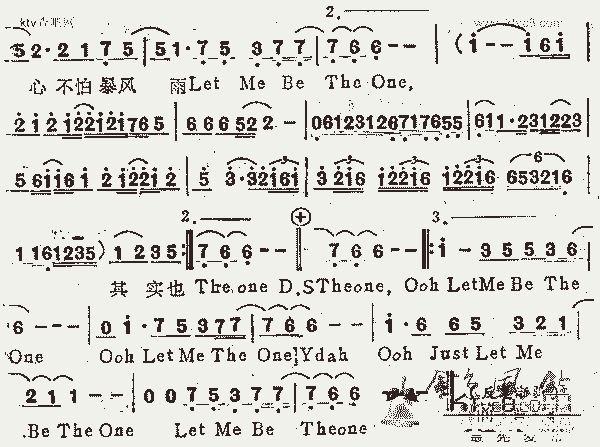 2.
5 2· 2 1 7 5 | 5 1· 7 5 3 7 7 | 7 6 6 - - | ( i - - i 6 i
心 不怕 暴风 雨Let Me Be The One,
2 i 2 i22i2i765 | 6 6 6 5 2 2 - | 06123126717655 | 611·231223
5 6ii6i 2 i22i 2 | 5 3·32i6i | 3 2i6 i22i6 i22i6 653216
2. 3.
1 161235) 1 2 3 5 :‖ 7 6 6 - - ‖ 7 6 6 - - ‖: i - 3 5 5 3 6
其 实也 The one D.S Theone, Ooh LetMe Be The
6 - - - | 0 i · 7 5 3 7 7 | 7 6 6 - - | i · 6 6 5 3 2 1
One Ooh Let Me The One]Ydah Ooh Just Let Me
2 1 1 - - | 0 0 7 5 3 7 7 | 7 6 6
Be The One Let Me Be Theone